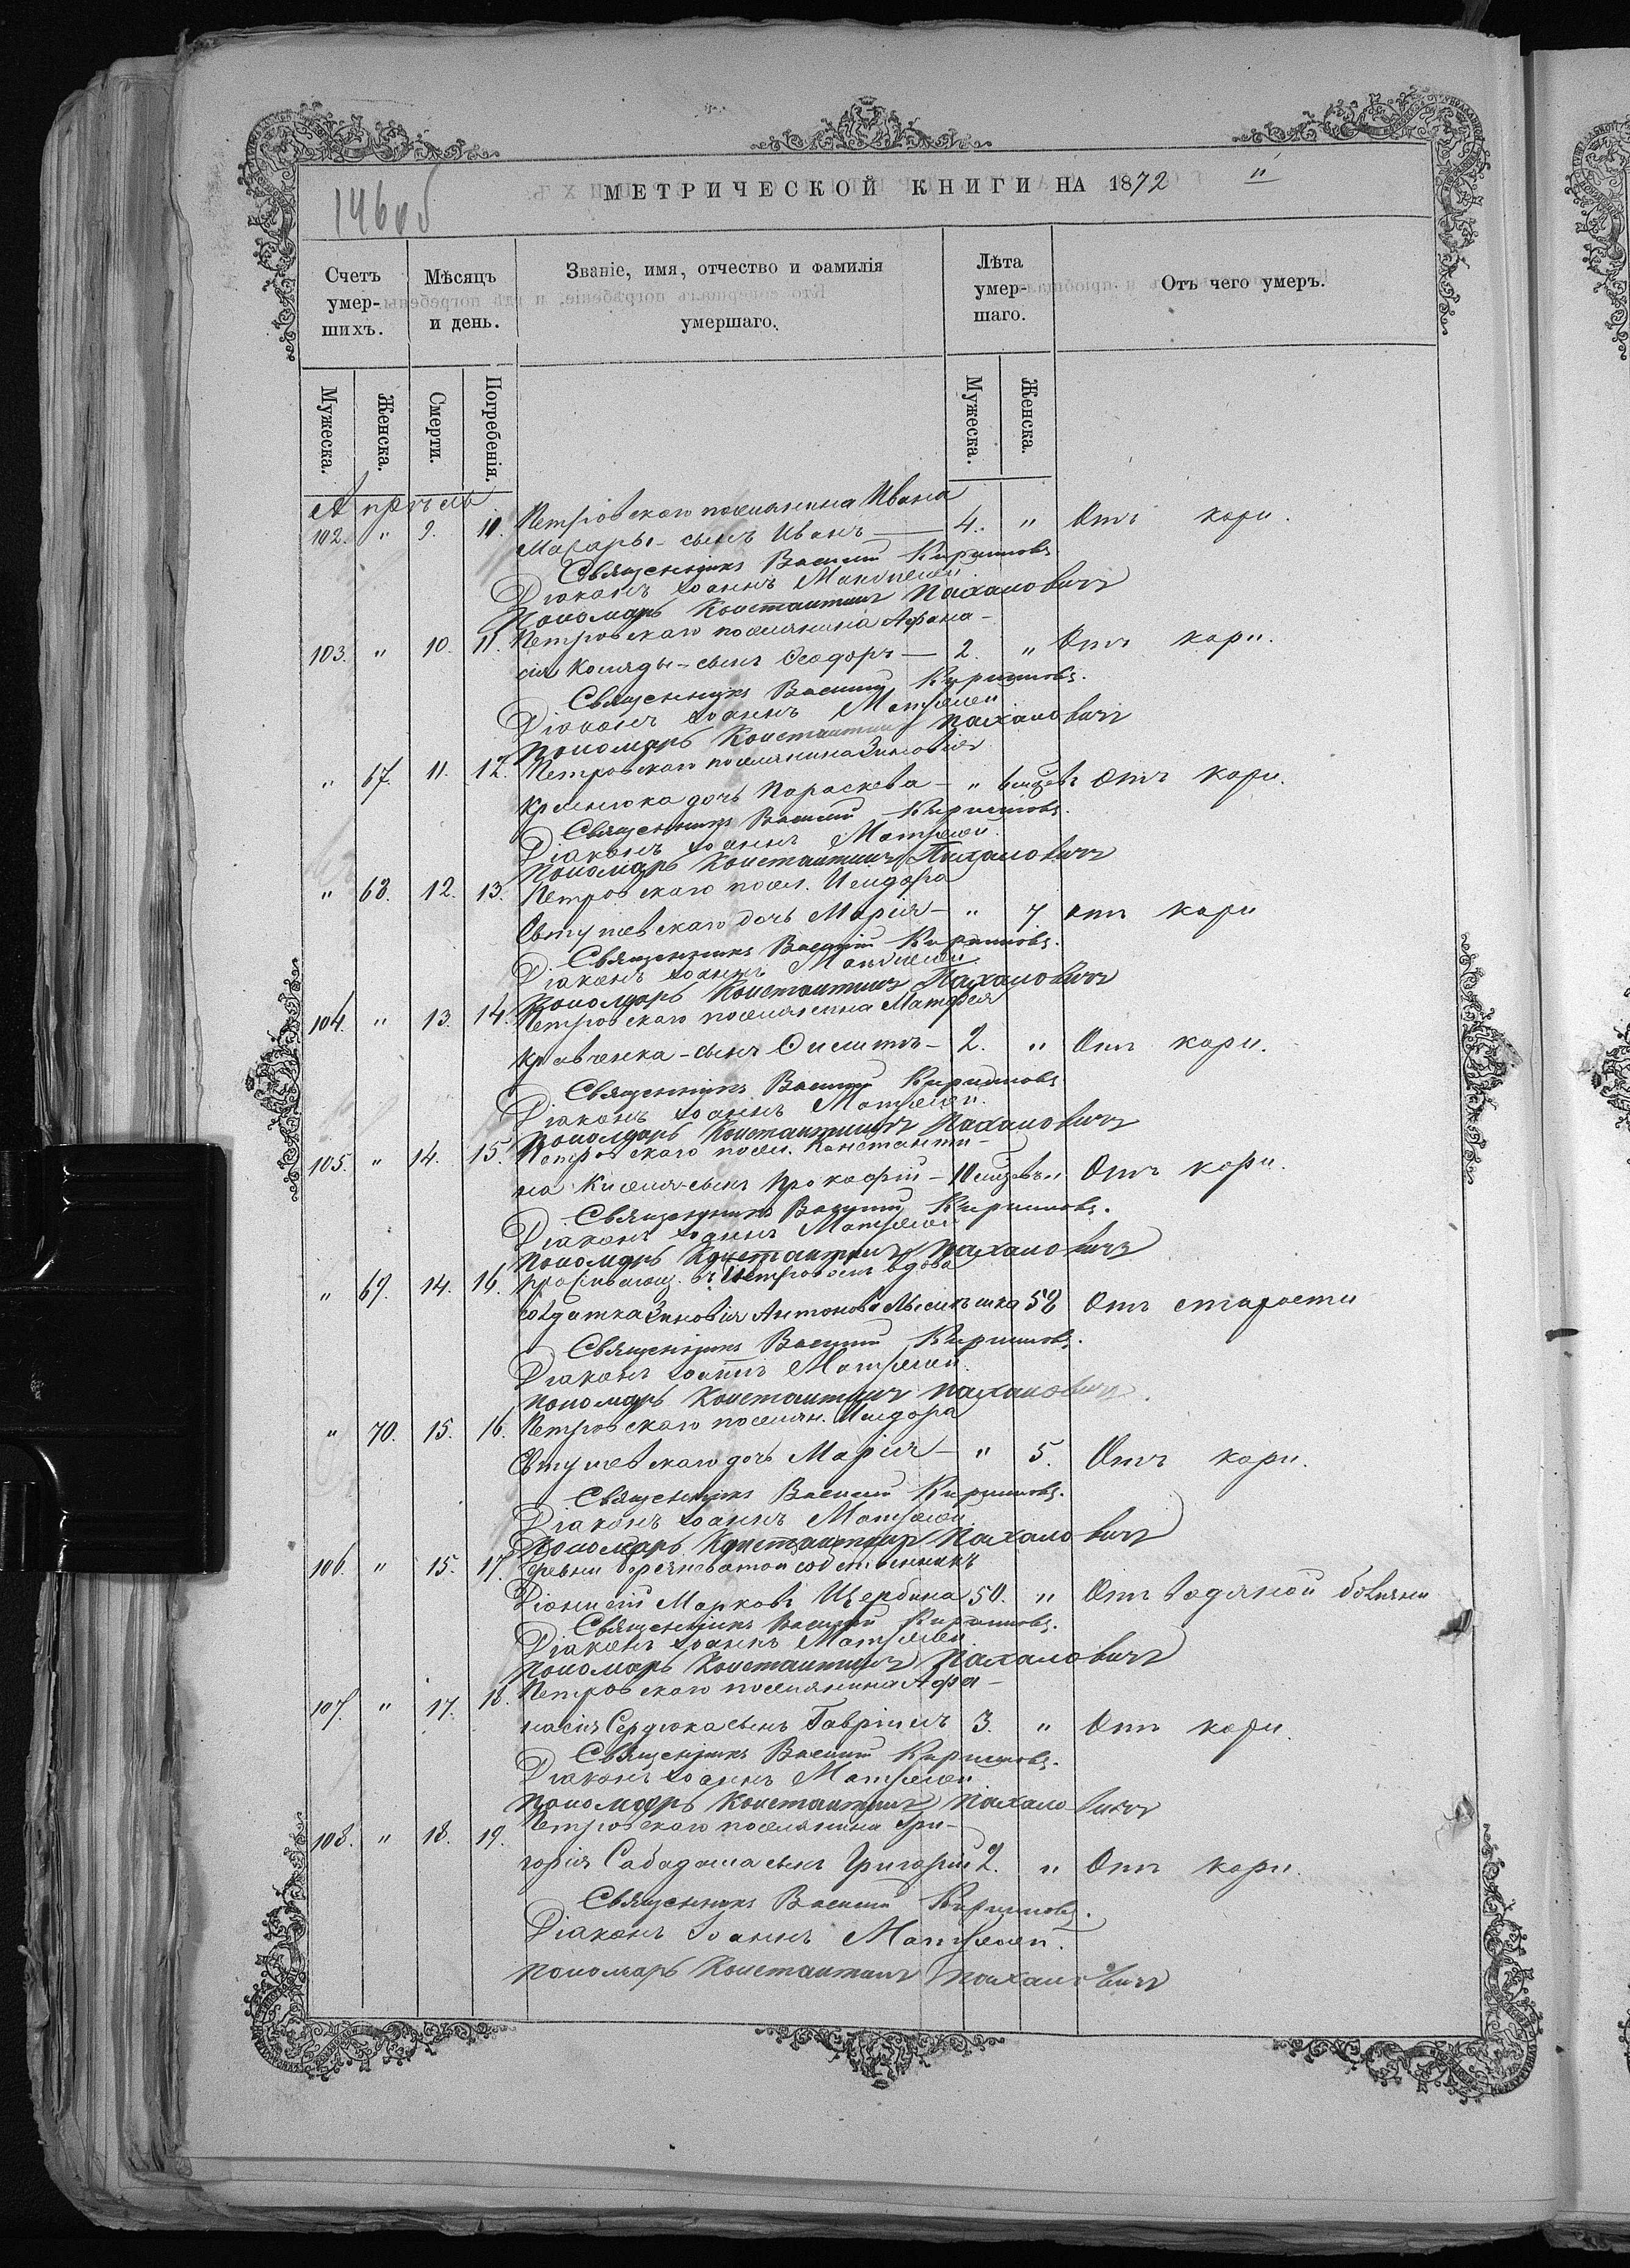 146 об
МЕТРИЧЕСКОЙ КНИГИ НА 1872 "
Счетъ умер-шихъ.
Мѣсяцъ и день.
Званіе, имя, отчество и фамилія умершаго.
Лѣта умер-шаго.
Отъ чего умеръ.
Мужеска.
Женска.
Смерти.
Погребенія.
Мужеска.
Женска.
Апрѣль
Петровскаго поселянина Ивана
102. " 9. 10. сынъ Иванъ — 4. " Отъ кори.
Священникъ Василій Кириловъ
Діаконъ Іоаннъ
Пономарь Константинъ Пахаловичъ
Петровскаго поселянина Афана-
103. " 10. 11. сія Коляды - сынъ Ѳеодоръ — 2. " Отъ кори.
Священникъ Василій Кириловъ.
Діаконъ Іоаннъ
Пономарь Константинъ Пахаловичъ
" 67. 11. 12. Петровскаго поселянина Зиновія
Кременюка дочь Параскева — " 6 мѣсяц. Отъ кори.
Священникъ Василій Кириловъ.
Діаконъ Іоаннъ
Пономарь Константинъ Пахаловичъ
" 68. 12. 13. Петровскаго посел. Исидора
Свтушевскаго дочь Марія — " 7 отъ кори
Священникъ Василій Кириловъ.
Діаконъ Іоаннъ
Пономарь Константинъ Пахаловичъ
104. " 13. 14. Петровскаго поселянина Матфея
Кравченка - сынъ — 2. " Отъ кори.
Священникъ Василій Кириловъ
Діаконъ Іоаннъ
Пономарь Константинъ Пахаловичъ
105. " 14. 15. Петровскаго посел. Константи-
на Киселя - сынъ Прокофій — 10 мѣсяц. " Отъ кори.
Священникъ Василій Кириловъ.
Діаконъ Іоаннъ
Пономарь Константинъ Пахаловичъ
" 69. 14. 16. Проживающ. въ Петровомъ вдова
солдатка Зиновія Антонова 58 Отъ старости
Священникъ Василій Кириловъ.
Діаконъ Іоаннъ
Пономарь Константинъ Пахаловичъ
" 70. 15. 16. Петровскаго поселян. Исидора
Свтушевскаго дочь Марія — " 5. Отъ кори.
Священникъ Василій Кириловъ.
Діаконъ Іоаннъ
Пономарь Константинъ Пахаловичъ
106. " 15. 17. Деревни Березноватой собственникъ
Діонисій Марковъ Щербина 50. " Отъ водяной болѣзни
Священникъ Василій Кириловъ.
Діаконъ Іоаннъ
Пономарь Константинъ Пахаловичъ
107. " 17. 18. Петровскаго поселянина Афа-
насія Сердюка сынъ Гавріилъ 3. " Отъ кори.
Священникъ Василій Кириловъ.
Діаконъ Іоаннъ
Пономарь Константинъ Пахаловичъ
108. " 18. 19. Петровскаго поселянина Гри-
горія Сабадаша сынъ Григорій 2. " Отъ кори.
Священникъ Василій Кириловъ.
Діаконъ Іоаннъ
Пономарь Константинъ Пахаловичъ